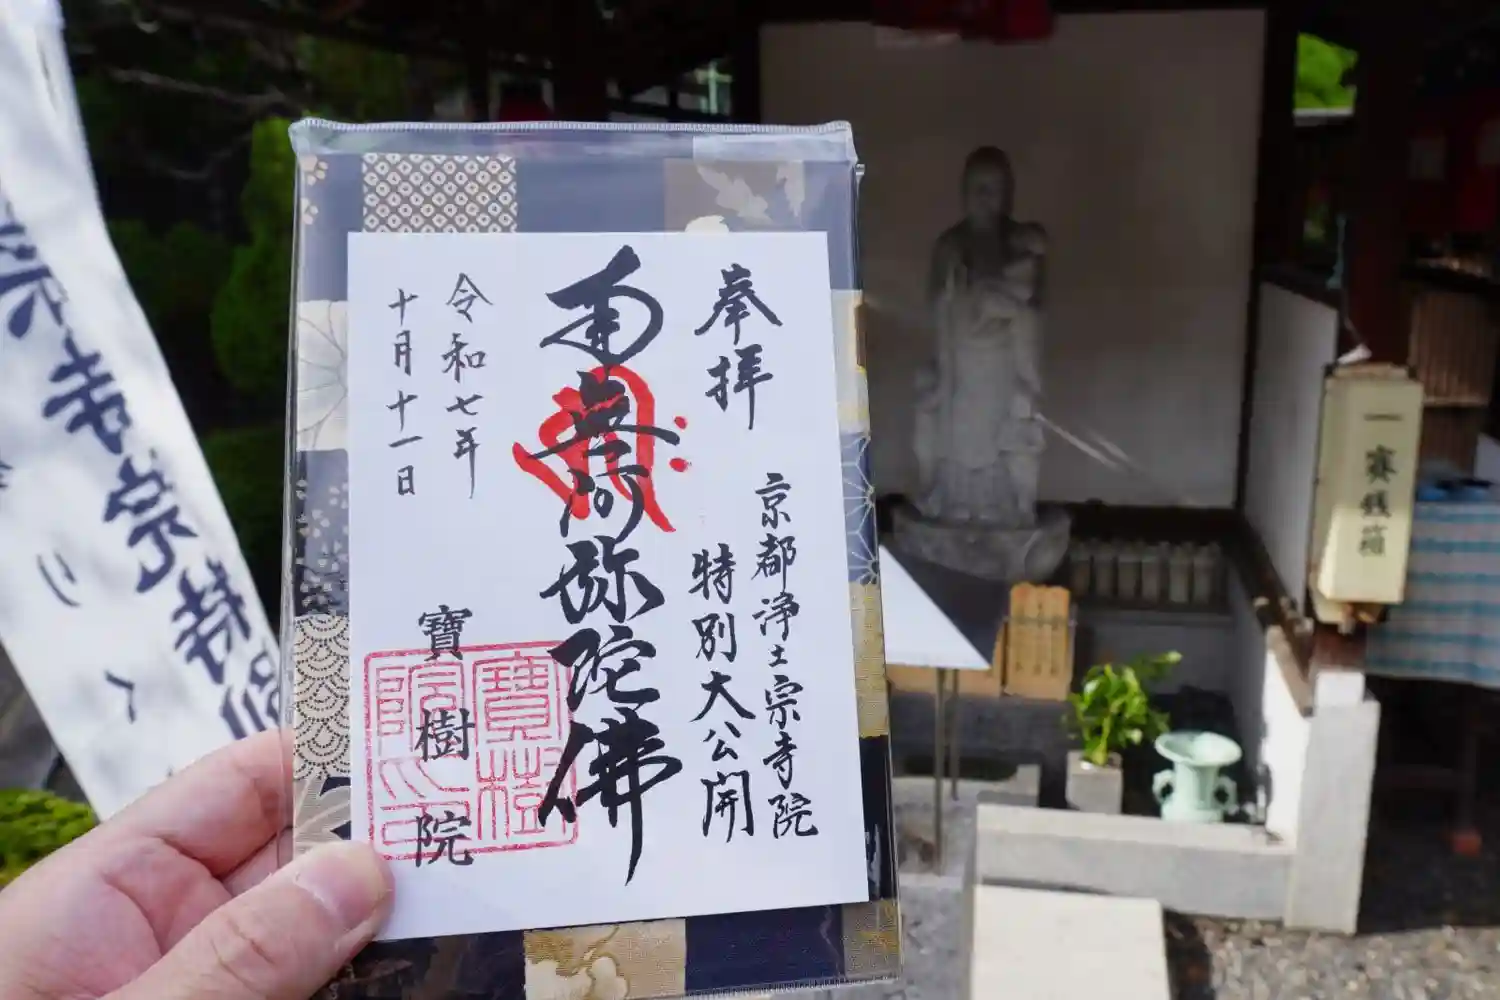 奉拝
京都浄土宗寺院
特別大公開
南無阿弥陀佛
令和七年
十月十一日
寶樹院
寶樹
院印
賽銭箱